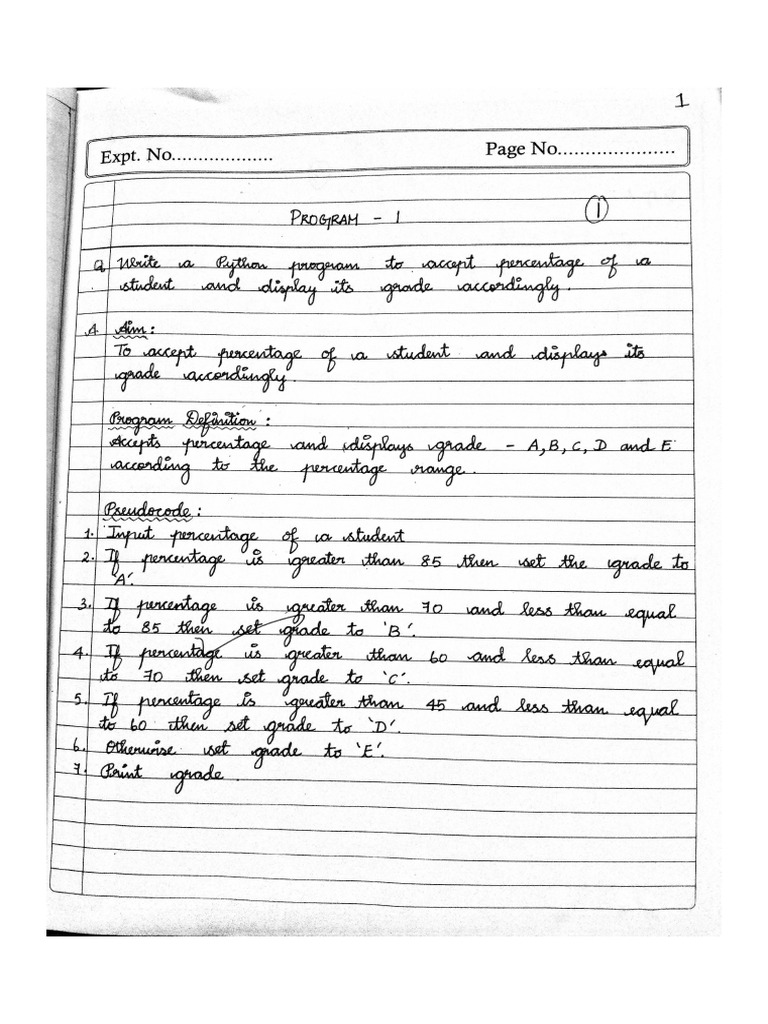 1
Expt. No...................
Page No.....................
PROGRAM - 1
1
Q. Write a Python program to accept percentage of a
student and display its grade accordingly.
A. Aim:
To accept percentage of a student and displays its
grade accordingly.
Program Definition:
Accepts percentage and displays grade - A, B, C, D and E
according to the percentage range.
Pseudocode:
1. Input percentage of a student
2. If percentage is greater than 85 then set the grade to
'A'.
3. If percentage is greater than 70 and less than equal
to 85 then set grade to 'B'.
4. If percentage is greater than 60 and less than equal
to 70 then set grade to 'C'.
5. If percentage is greater than 45 and less than equal
to 60 then set grade to 'D'.
6. Otherwise set grade to 'E'.
7. Print grade.